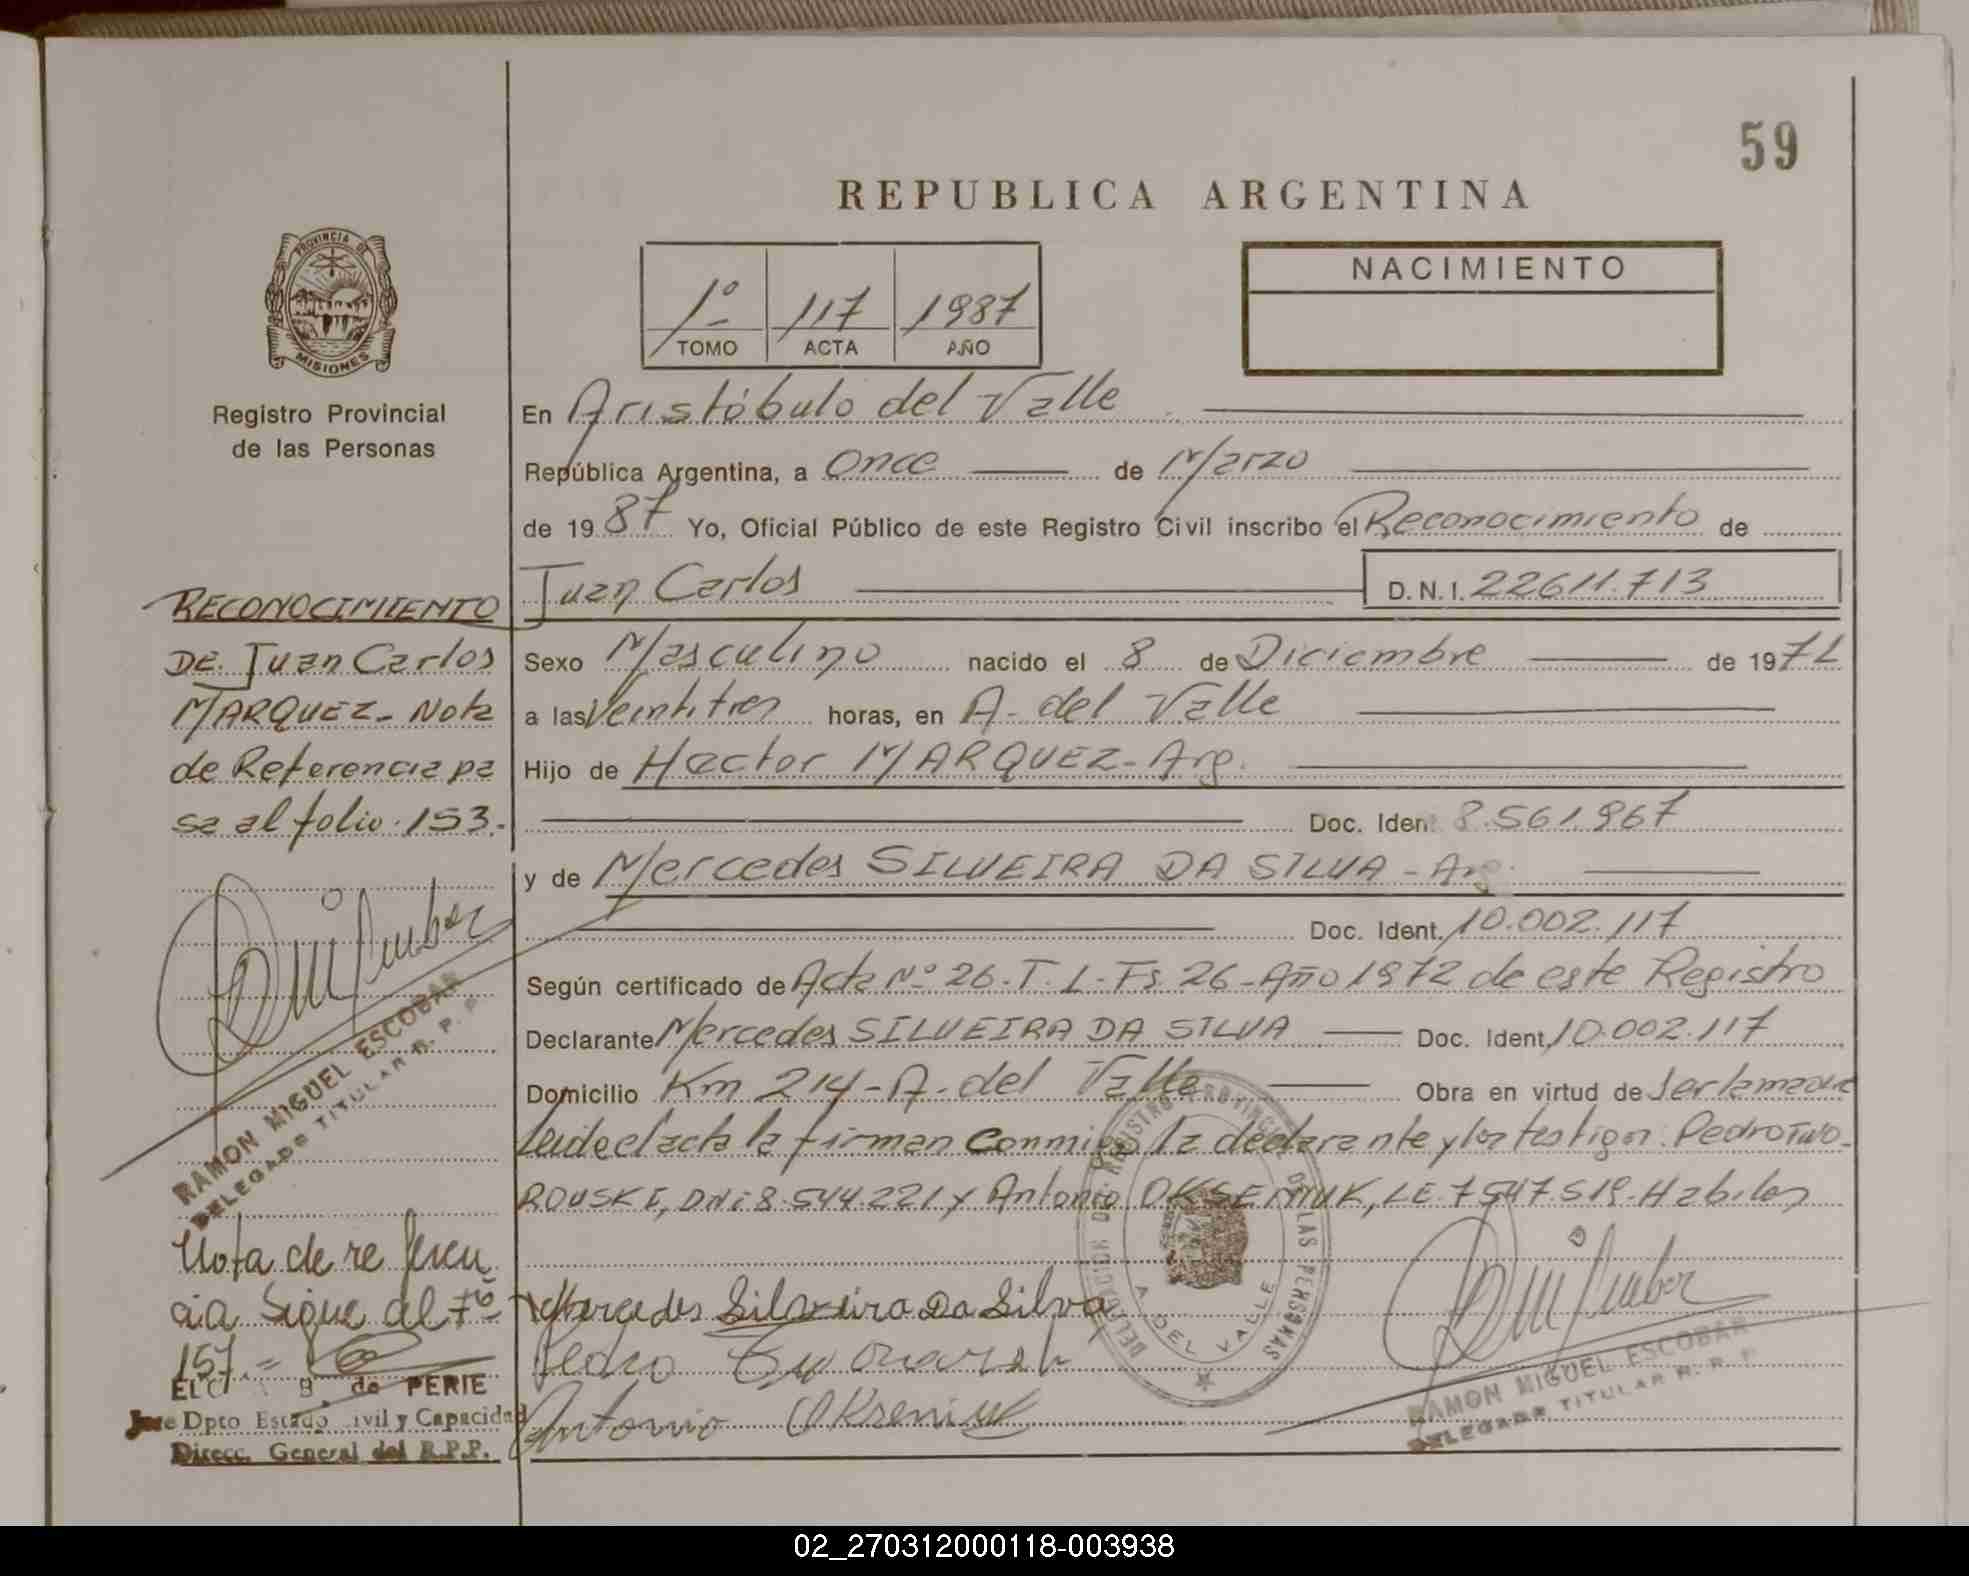 59
REPUBLICA ARGENTINA
PROVINCIA DE
MISIONES
Registro Provincial
de las Personas
1º 117 1987
TOMO ACTA AÑO
NACIMIENTO
En Aristóbulo del Valle
República Argentina, a Once de Marzo
de 1987 Yo, Oficial Público de este Registro Civil inscribo el Reconocimiento de
Juan Carlos D.N.I. 22611.713
Sexo Masculino nacido el 8 de Diciembre de 197
a las Veintitres horas, en A. del Valle
Hijo de Hector MARQUEZ - Arg.
Doc. Ident 8.561.967
y de Mercedes SILVEIRA DA SILVA - Arg.
Doc. Ident. 10.002.117
Según certificado de Acta Nº 26. T. 1 - Fs 26 - Año 1972 de este Registro
Declarante Mercedes SILVEIRA DA SILVA Doc. Ident. 10.002.117
Domicilio Km 214 - A. del Valle Obra en virtud de ser la madre
Leida el acta la firman conmigo la declarante y los testigos: Pedro TWO-
ROUSKI, DNI 8.544.221 y Antonio OKSENIUK, LE. 7547.519. Habiles
Mercedes Silveira Da Silva
Pedro
Antonio Okseniuk
RAMON MIGUEL ESCOBAR
DELEGADO TITULAR R. P. P.
DELEGACION DEL REGISTRO PROVINCIAL DE LAS PERSONAS
A. DEL VALLE
RECONOCIMIENTO
DE. Juan Carlos
MARQUEZ - Nota
de Referencia pa
sa al folio. 153.-
RAMON MIGUEL ESCOBAR
DELEGADO TITULAR R. P. P.
Nota de referen
cia sigue al Fº
157.=
de PERIE
Jefe Dpto Estado Civil y Capacidad
Direcc. General del R.P.P.
02_270312000118-003938